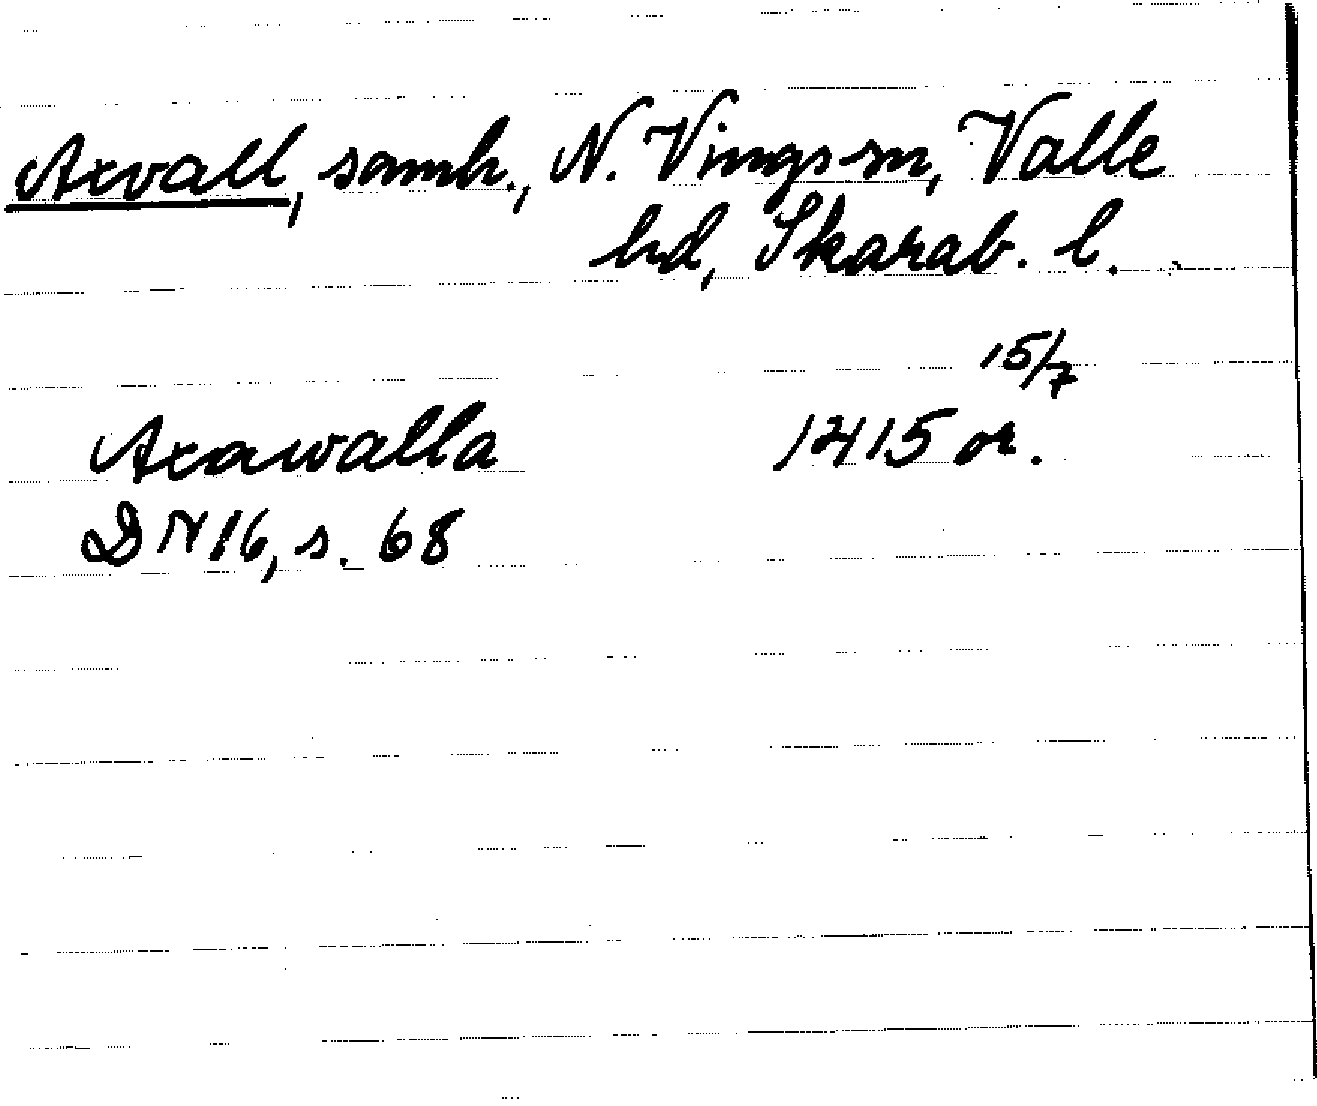 Axvall, samh., N. Vings sn, Valle
hd, Skarab. l.
15/7
Axawalla 1415 or.
DN 16, s. 68